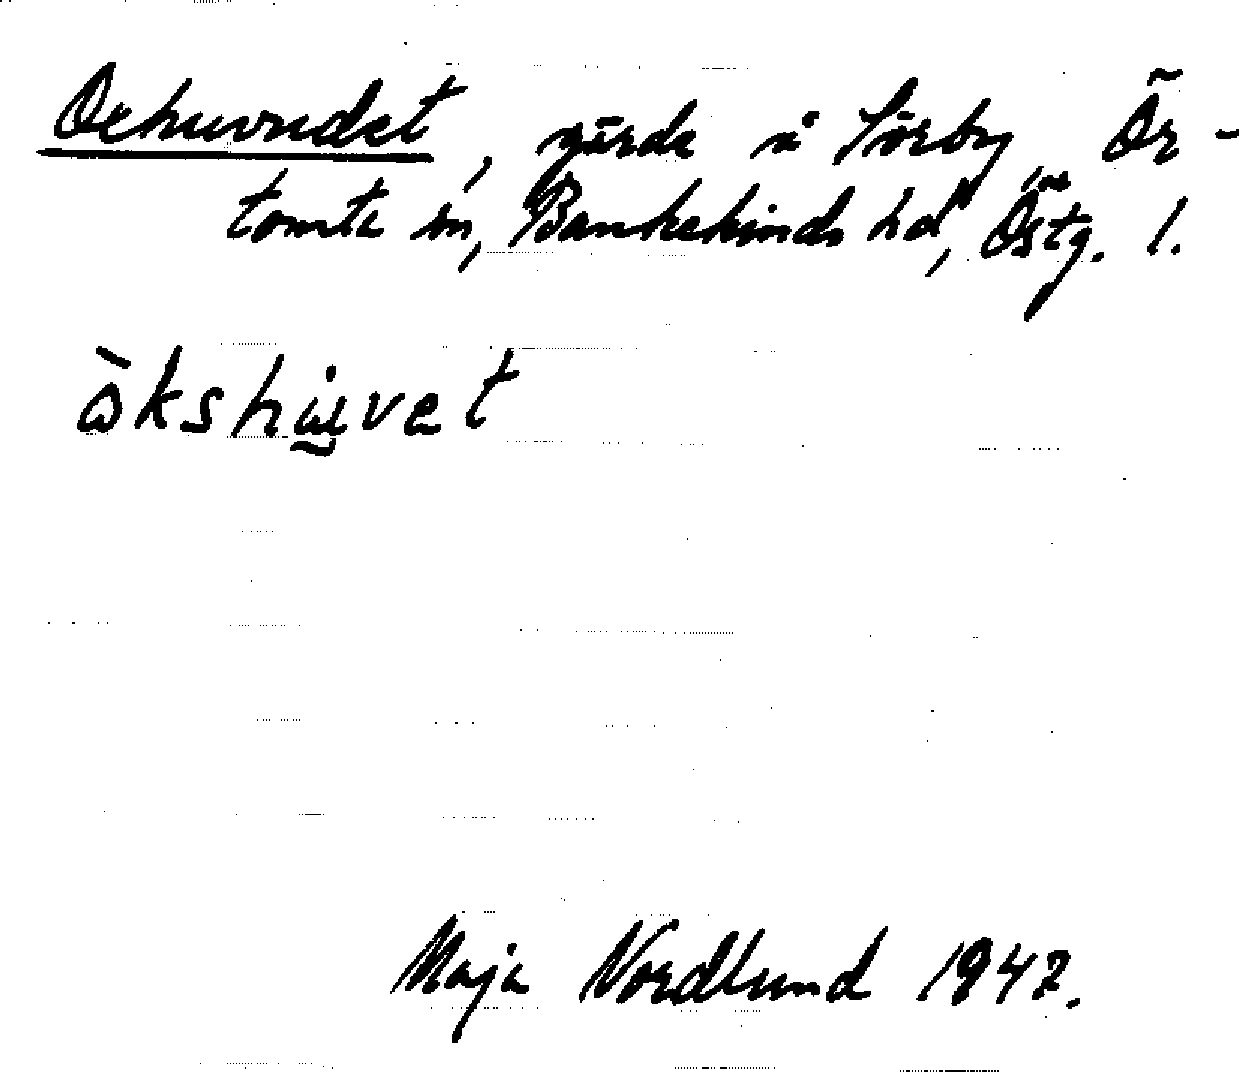 Oxhuvudet, gärde å Sörby, Ör-
tomta sn, Bankekinds hd, Östg. l.
àkshu̯vet
Maja Nordlund 1947.